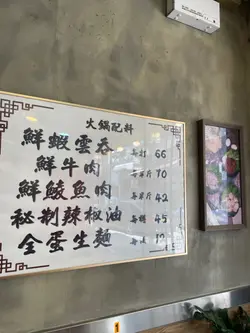 火鍋配料
鮮蝦雲吞 每打 66
鮮牛肉 每半斤 70
鮮鯪魚肉 每半斤 42
秘制辣椒油 每樽 45
全蛋生麵 12